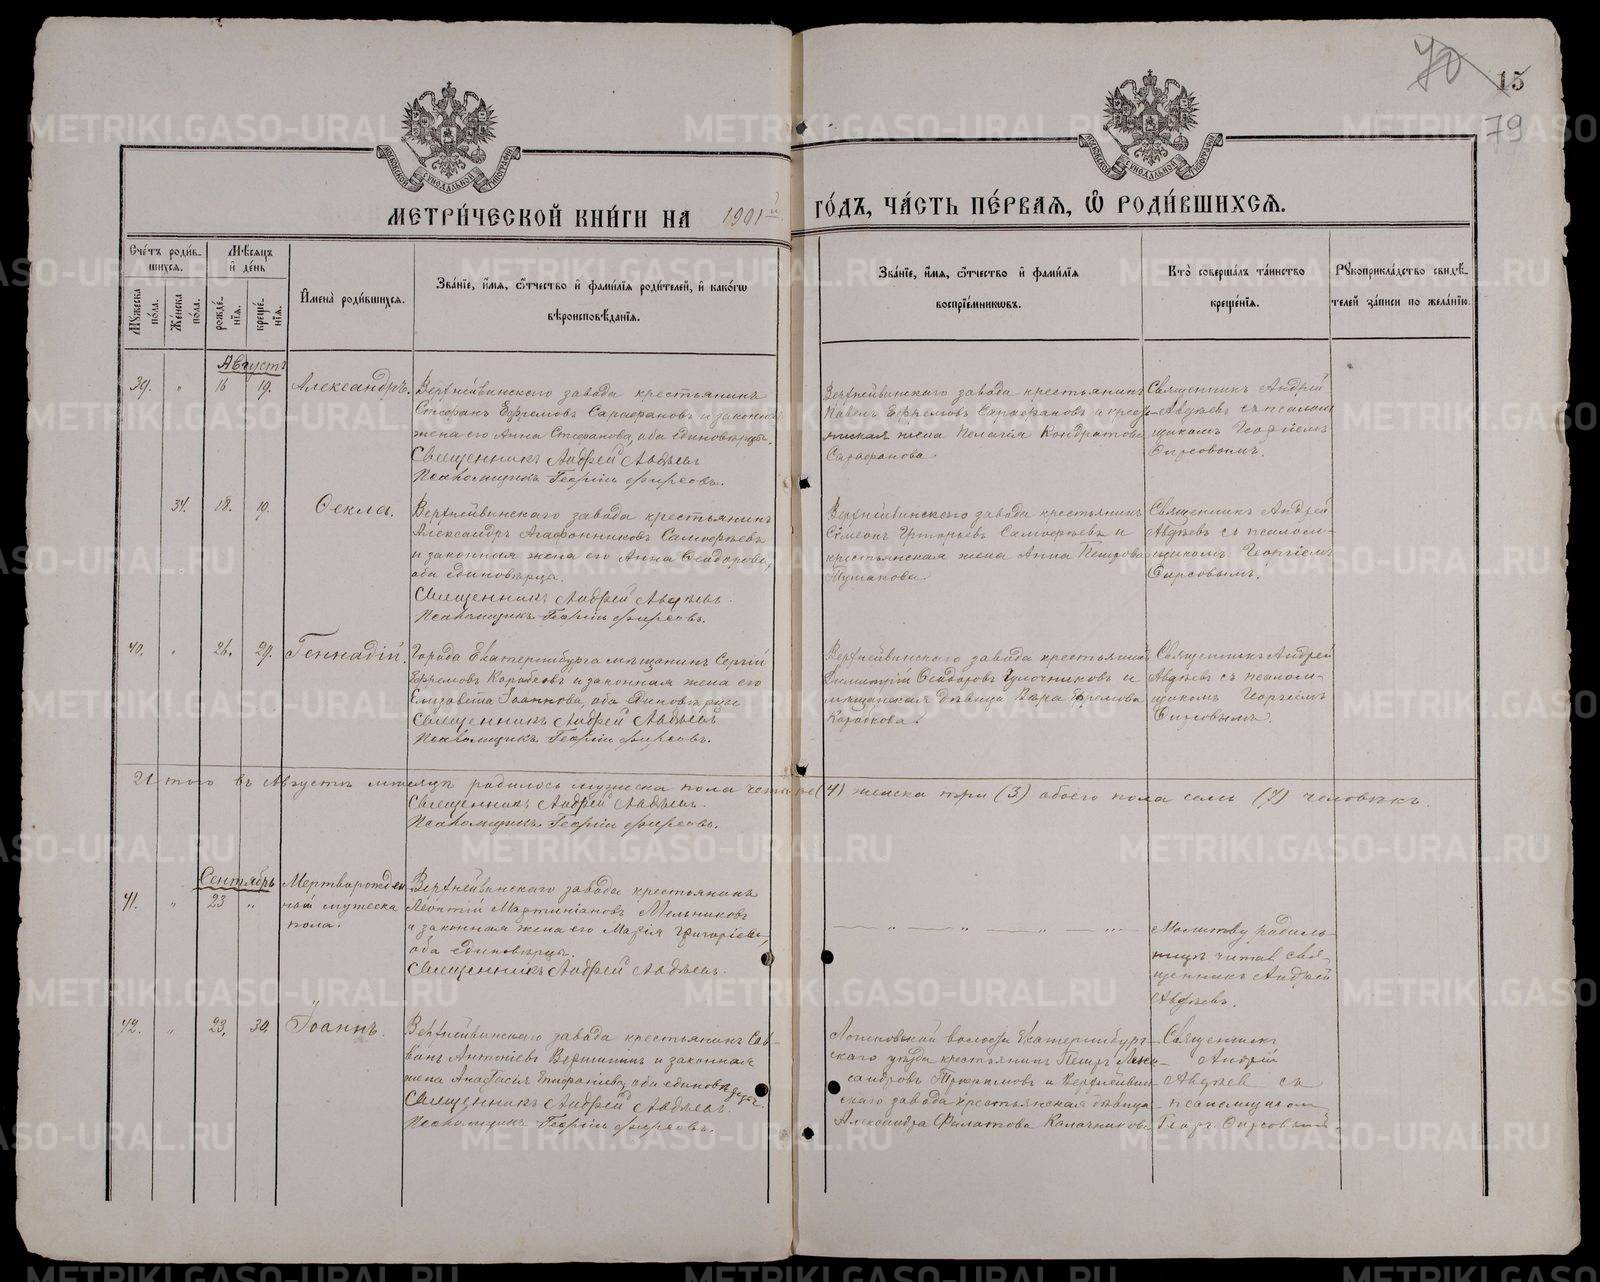 70
15
79
МОСКОВСКОЙ СѴНОДАЛЬНОЙ ТИПОГРАФІИ
МОСКОВСКОЙ СѴНОДАЛЬНОЙ ТИПОГРАФІИ
МЕТРИ́ЧЕСКОЙ КНИ́ГИ НА 1901 й
ГО́ДЪ, ЧА́СТЬ ПЕ́РВАЯ, Ѽ РОДИ́ВШИХСЯ.
Сче́тъ роди́в-
шихся.
Мѣсяцъ
и҆ де́нь
Мꙋ́жеска
по́ла.
Же́нска
по́ла.
рожде́-
нїя.
креще́-
нїя.
И҆мена̀ роди́вшихся.
Зва́нїе, и҆́мя, ѻ҆́тчество и҆ фами́лїя роди́телей, и҆ како́гѡ
вѣроисповѣ́данїя.
Зва́нїе, и҆́мя, ѻ҆́тчество и҆ фами́лїя
воспрїе́мниковъ.
Кто̀ соверша́лъ та́инство
креще́нїя.
Рꙋкоприкла́дство свидѣ́-
телей за́писи по жела́нїю.
Августъ
39. " 16 19. Александръ.
Верхнейвинскаго завода крестьянинъ
Стефанъ Ефремовъ Сарафановъ и законная
жена его Анна Стефанова, оба единовѣрцы.
Священникъ Андрей Авдѣевъ
Псаломщикъ Георгій Фирсовъ.
Верхнейвинскаго завода крестьянинъ
Павелъ Ефремовъ Сарафановъ и кресть-
янская жена Пелагія Кондратова
Сарафанова.
Священникъ Андрей
Авдѣевъ съ псалом-
щикомъ Георгіемъ
Фирсовымъ.
34. 18. 19. Ѳекла.
Верхнейвинскаго завода крестьянинъ
Александръ Агафонниковъ Самофѣевъ
и законная жена его Анна Ѳеодорова,
оба единовѣрцы.
Священникъ Андрей Авдѣевъ.
Псаломщикъ Георгій Фирсовъ.
Верхнейвинскаго завода крестьянинъ
Сѵмеонъ Григорьевъ Самофѣевъ и
крестьянская жена Анна Петрова
Священникъ Андрей
Авдѣевъ съ псалом-
щикомъ Георгіемъ
Фирсовымъ.
40. " 26. 29. Геннадій.
Города Екатеринбурга мѣщанинъ Сергій
Ефремовъ Коробковъ и законная жена его
Елизавета Іоаннова, оба единовѣрцы
Священникъ Андрей Авдѣевъ
Псаломщикъ Георгій Фирсовъ.
Верхнейвинскаго завода крестьянинъ
Димитрій Ѳеодоровъ и
мѣщанская дѣвица Вѣра Ефремова
Коробкова.
Священникъ Андрей
Авдѣевъ съ псалом-
щикомъ Георгіемъ
Фирсовымъ.
того въ Августѣ мѣсяцѣ родилось мужеска пола четыре (4) женска три (3) обоего пола семь (7) человѣкъ.
Священникъ Андрей Авдѣевъ.
Псаломщикъ Георгій Фирсовъ.
Сентябрь
41. " 23 "
Мертворожден-
ный мужеска
пола.
Верхнейвинскаго завода крестьянинъ
Леонтій Мартиніановъ Мельниковъ
и законная жена его Марія Григоріева,
оба единовѣрцы.
Священникъ Андрей Авдѣевъ.
Молитву родиль-
ницѣ читалъ свя-
щенникъ Андрей
Авдѣевъ.
42. " 23. 30. Іоаннъ.
Верхнейвинскаго завода крестьянинъ Сав-
ванъ Антоніевъ Вершининъ и законная
жена Анастасія Епифаніева, оба единовѣрцы.
Священникъ Андрей Авдѣевъ.
Псаломщикъ Георгій Фирсовъ.
волости Екатеринбург-
скаго уѣзда крестьянинъ Петръ Алек-
сандровъ Трофимовъ и Верхнейвин-
скаго завода крестьянская дѣвица
Александра Филатова Калачникова
Священникъ
Андрей
Авдѣевъ съ
псаломщикомъ
Георг. Фирсовымъ
METRIKI.GASO-URAL.RU